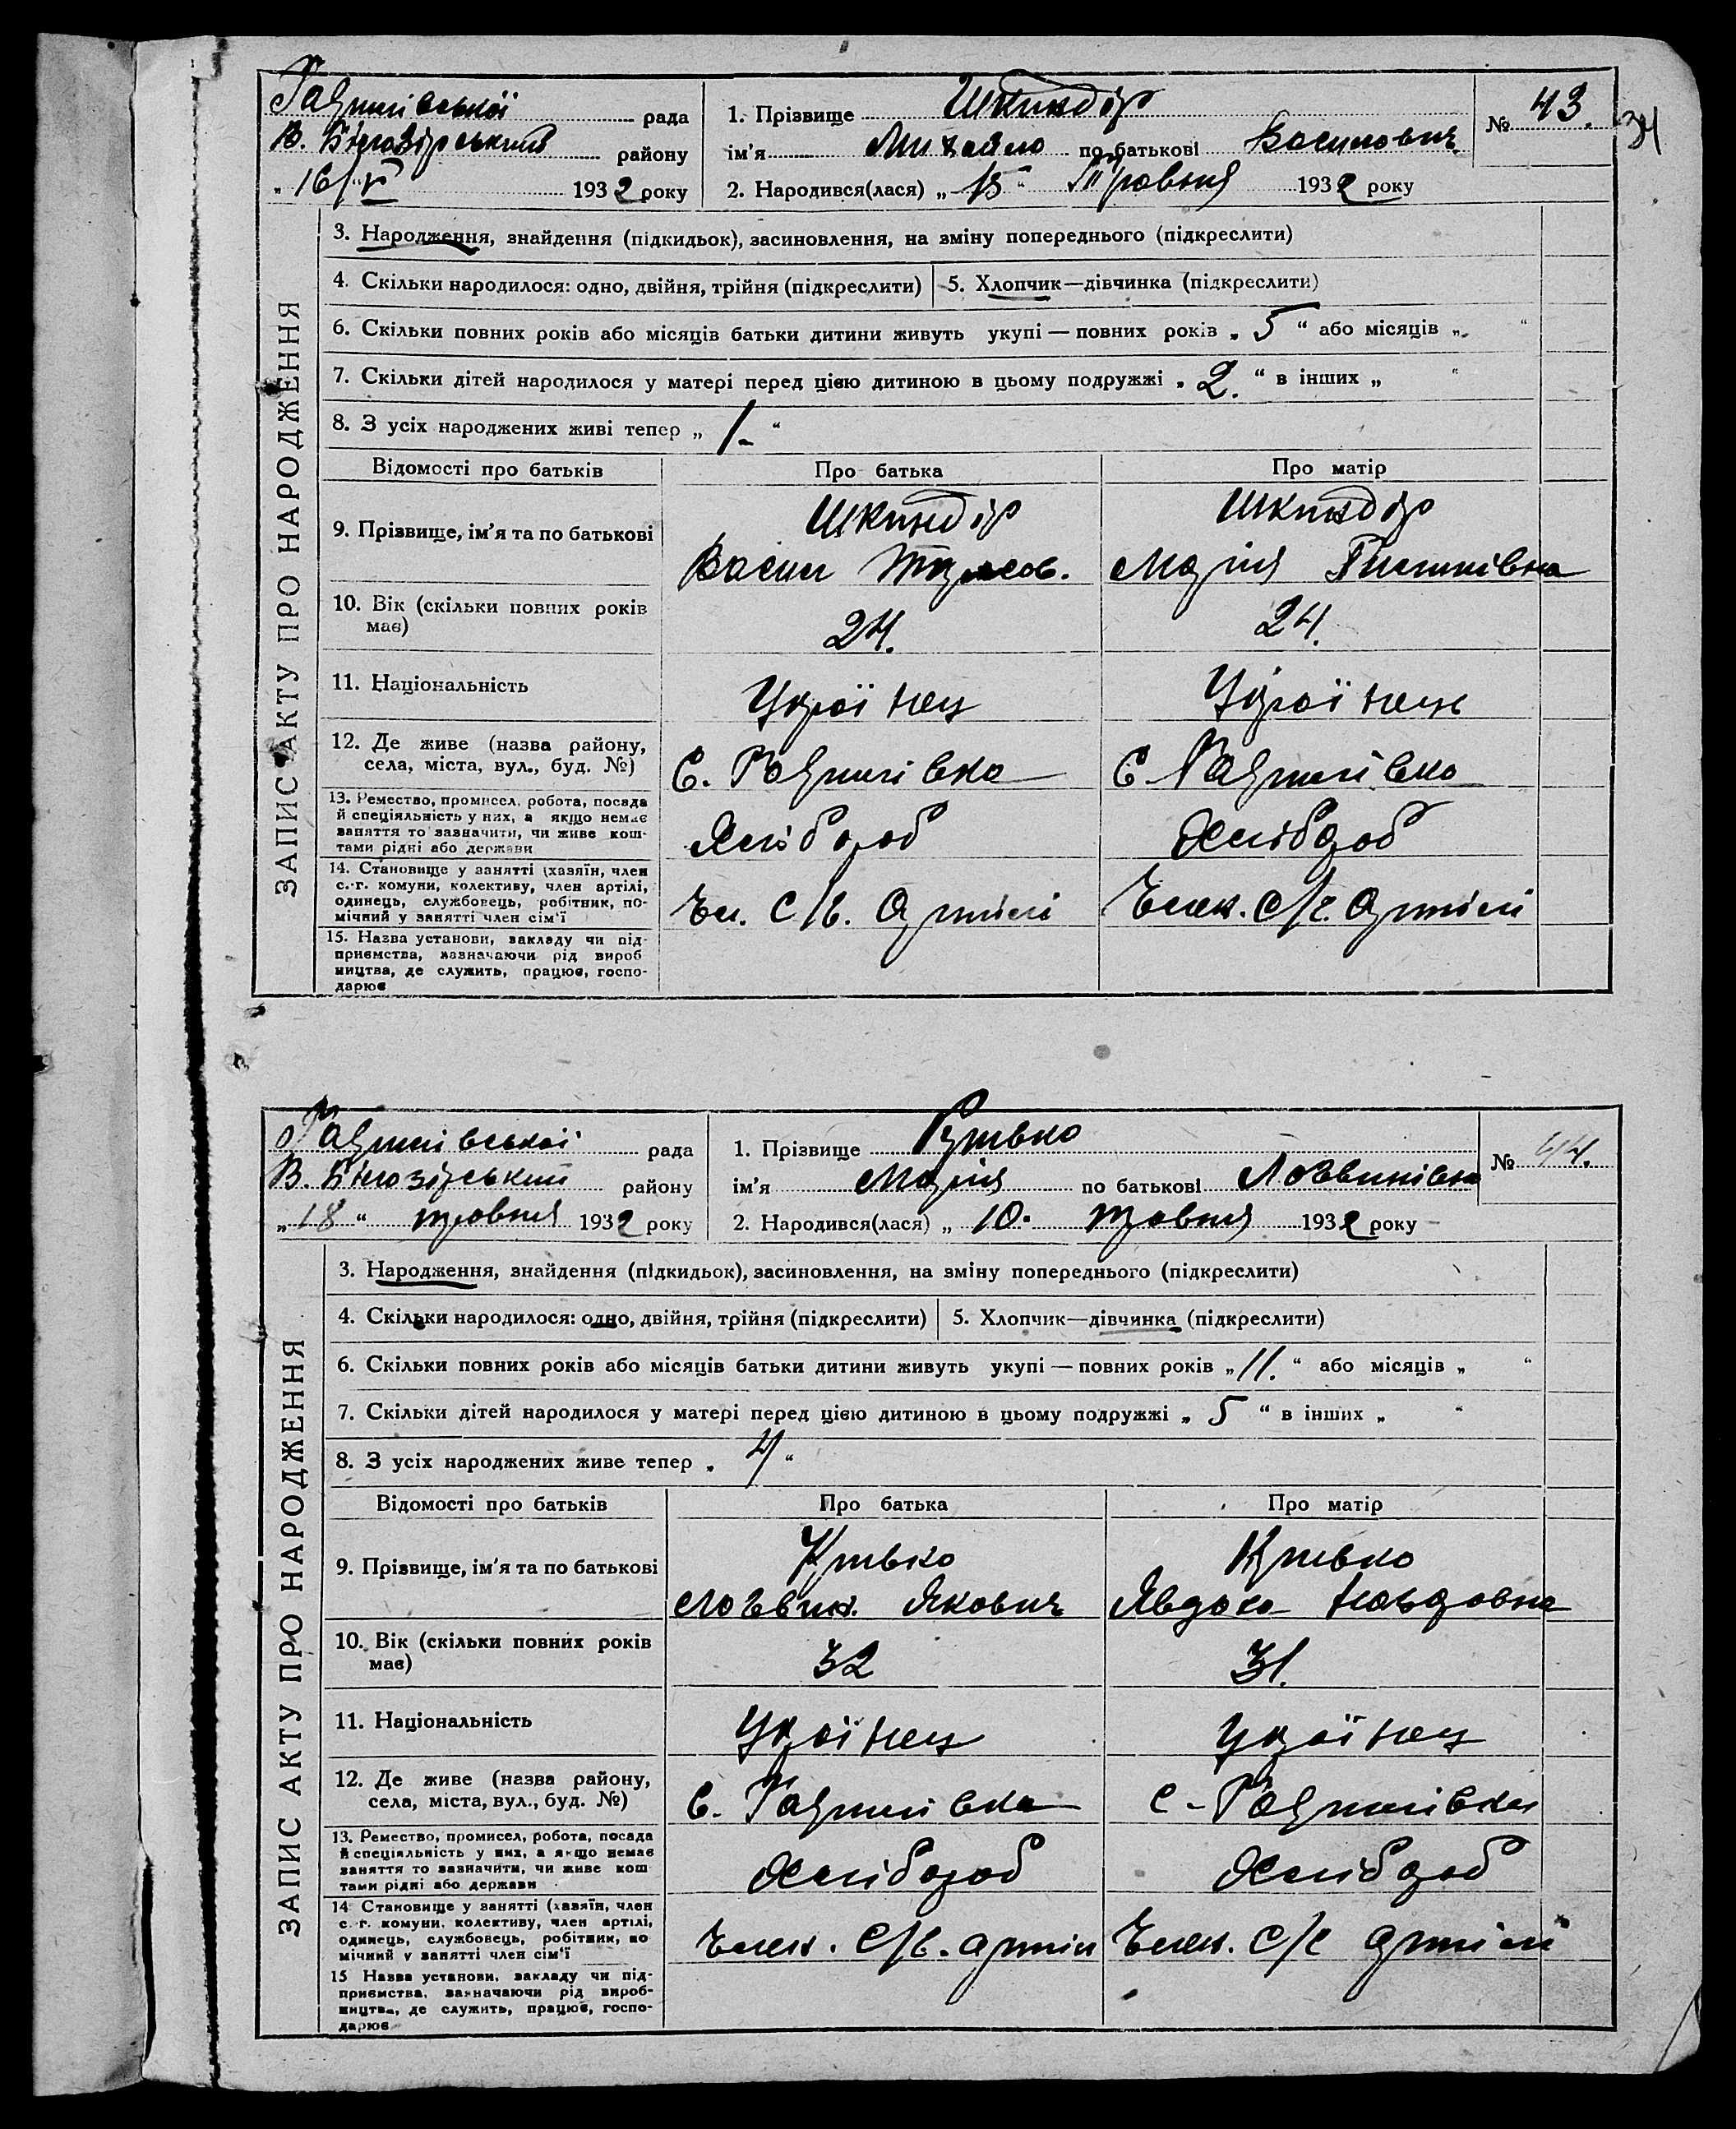 34
рада
В. Білозірський району
„16/V 1932 року
1. Прізвище Шкиндір
ім'я Михайло по батькові Василович
2. Народився(лася) „15“ Травня 1932 року
№ 43.
ЗАПИС АКТУ ПРО НАРОДЖЕННЯ
3. Народження, знайдення (підкидьок), засиновлення, на зміну попереднього (підкреслити)
4. Скільки народилося: одно, двійня, трійня (підкреслити)
5. Хлопчик—дівчинка (підкреслити)
6. Скільки повних років або місяців батьки дитини живуть укупі — повних років „ 5 “ або місяців „ “
7. Скільки дітей народилося у матері перед цією дитиною в цьому подружжі „ 2. “ в інших „ “
8. З усіх народжених живі тепер „ 1- “
Відомості про батьків Про батька Про матір
9. Прізвище, ім'я та по батькові
Шкиндір Шкиндір
Васил Марія
10. Вік (скільки повних років
має)
24. 24.
11. Національність
Україنець Українець
12. Де живе (назва району,
села, міста, вул., буд. №)
С. С.
13. Ремество, промисел, робота, посада
й спеціяльність у них, а якщо немає
заняття то зазначити, чи живе кош-
тами рідні або держави
Хлібороб Хлібороб
14. Становище у занятті (хазяїн, член
с.-г. комуни, колективу, член артілі,
одинець, службовець, робітник, по-
мічний у занятті член сім'ї
Чл. С/г. Артілі Член. С/г. Артілі
15. Назва установи, закладу чи під-
приємства, зазначаючи рід вироб
ництва, де служить, працює, госпо-
дарює
рада
В. Білозірський району
„18“ травня 1932 року
1. Прізвище
ім'я Марія по батькові Логвинівна
2. Народився(лася) „10. травня 1932 року
№ 44.
ЗАПИС АКТУ ПРО НАРОДЖЕННЯ
3. Народження, знайдення (підкидьок), засиновлення, на зміну попереднього (підкреслити)
4. Скільки народилося: одно, двійня, трійня (підкреслити)
5. Хлопчик—дівчинка (підкреслити)
6. Скільки повних років або місяців батьки дитини живуть укупі — повних років „11.“ або місяців „ “
7. Скільки дітей народилося у матері перед цією дитиною в цьому подружжі „ 5 “ в інших „ “
8. З усіх народжених живе тепер „ 4 “
Відомості про батьків Про батька Про матір
9. Прізвище, ім'я та по батькові
Логвин. Якович Явдоха
10. Вік (скільки повних років
має)
32 31.
11. Національність
Українец Українец
12. Де живе (назва району,
села, міста, вул., буд. №)
с. с.
13. Ремество, промисел, робота, посада
й спеціяльність у них, а якщо немає
заняття то зазначити, чи живе кош
тами рідні або держави
Хлібороб Хлібороб
14 Становище у занятті (хазяїн, член
с.-г. комуни, колективу, член артілі,
одинець, службовець, робітник, по
мічний у занятті член сім'ї
Член. С/г. артіл Член. С/г артілі
15 Назва установи, закладу чи під-
приємства, зазначаючи рід вироб-
ництва, де служить, працює, госпо-
дарює